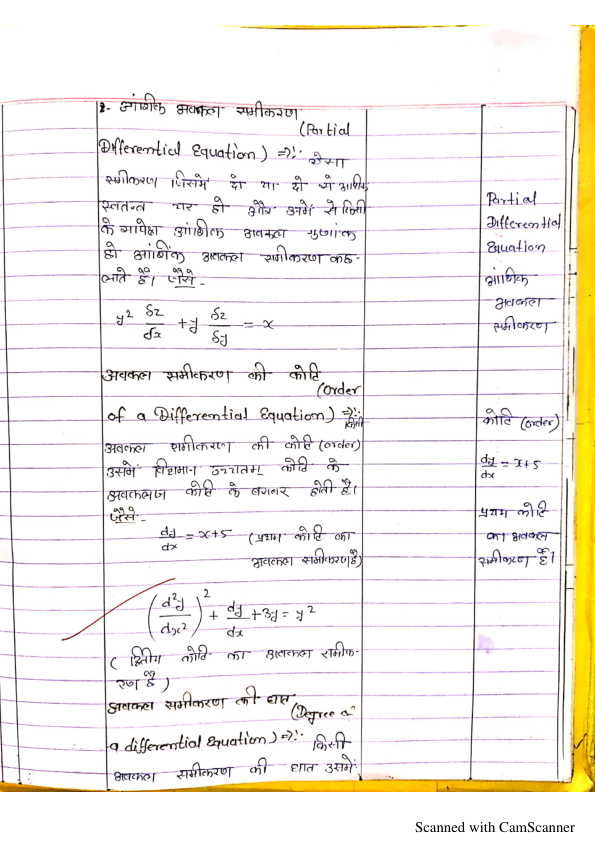 2- आंशिक अवकल समीकरण
(Partial
Differential Equation) =>:- ऐसा
समीकरण जिसमें दो या दो से अधिक
स्वतन्त चर हो और उनमें से किसी
के सापेक्ष आंशिक अवकल गुणांक
हो आंशिक अवकल समीकरण कह-
लाते है। जैसे-
y² δz/δx + y δz/δy = x
अवकल समीकरण की कोटि
(Order
of a Differential Equation) =>:- किसी
अवकल समीकरण की कोटि (order)
उसमें विद्यमान उच्चतम् कोटि के
अवकलज कोटि के बराबर होती है।
जैसे-
dy/dx = x+5 (प्रथम कोटि का
अवकल समीकरण है)
(d²y/dx²)² + dy/dx + 3y = y²
( द्वितीय कोटि का अवकल समीक-
रण है )
अवकल समीकरण की घात
(Degree of
a differential Equation) =>:- किसी
अवकल समीकरण की घात उसमें
Partial
Differential
Equation
आंशिक
अवकल
समीकरण
कोटि (order)
dy/dx = x+5
प्रथम कोटि
का अवकल
समीकरण है।
Scanned with CamScanner